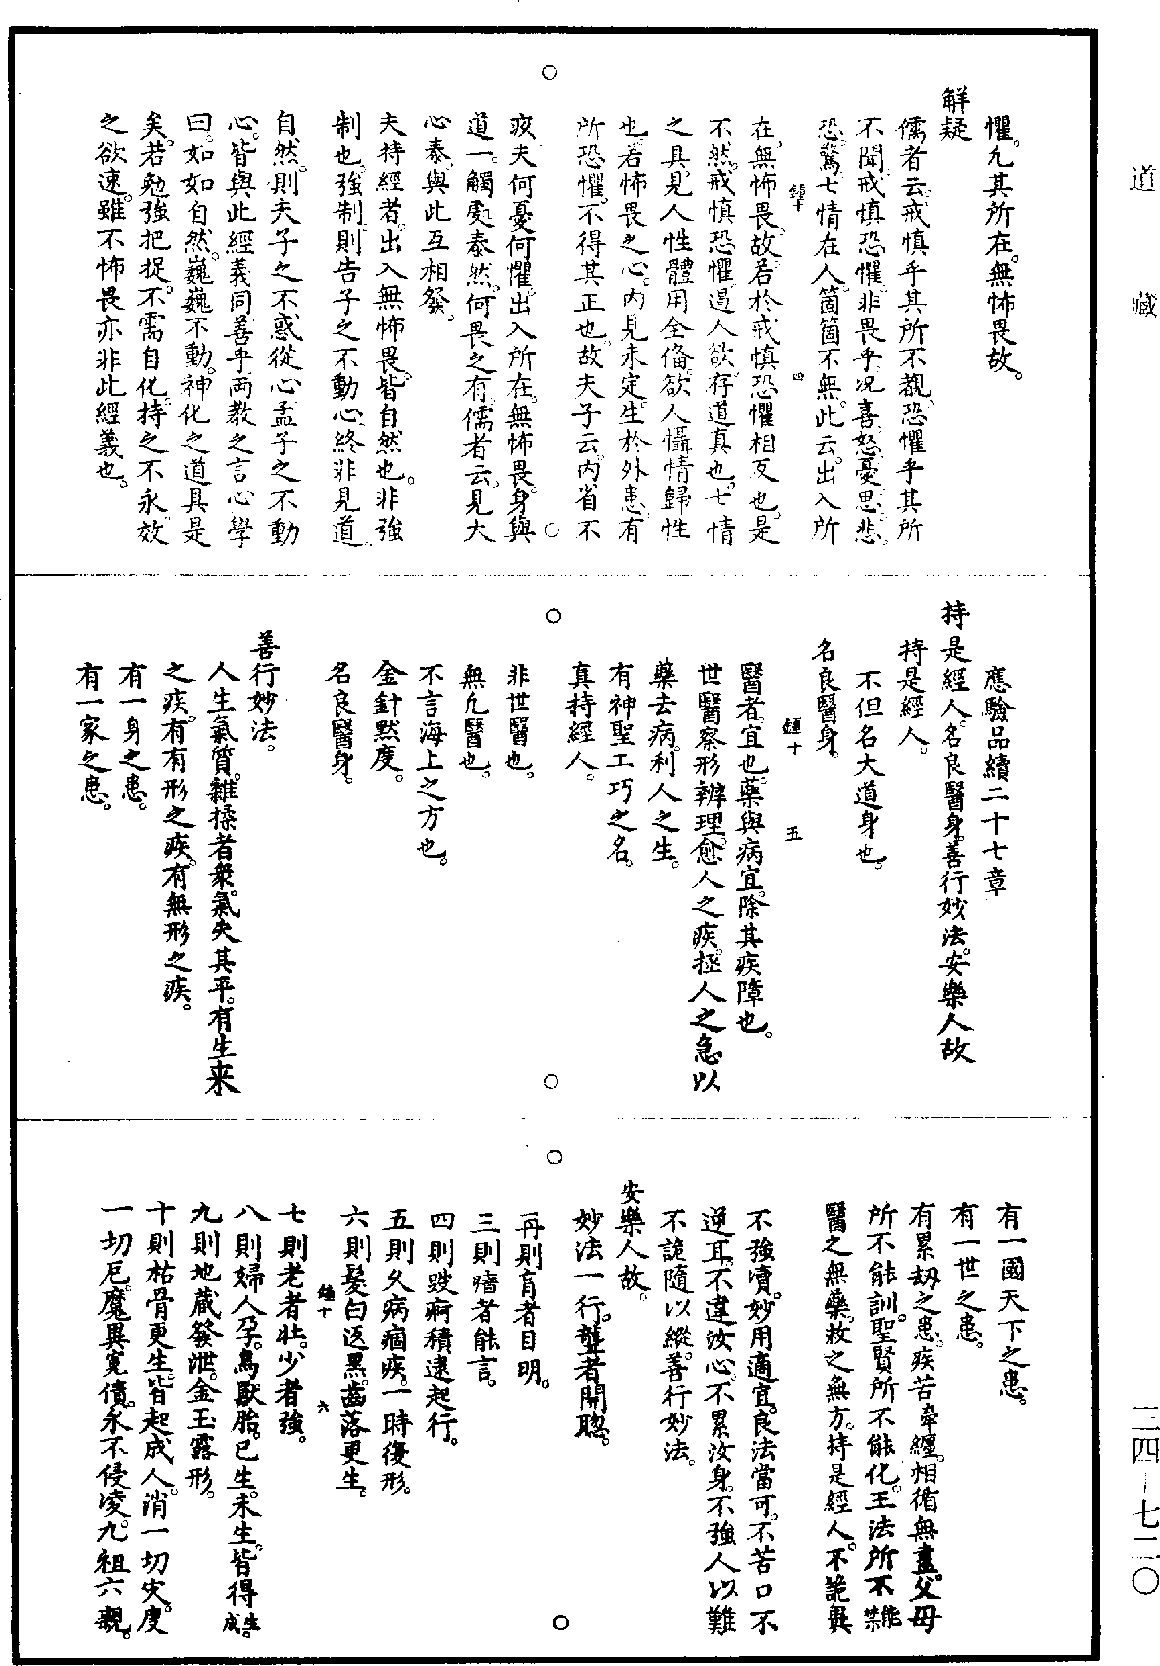 道藏
三四—七二〇
懼。凡其所在。無怖畏故。
解疑
儒者云。戒慎乎其所不覩。恐懼乎其所
不聞。戒慎恐懼。非畏乎。况喜怒憂思悲。
恐驚七情在人。箇箇不無。此云。出入所
鍾十 四
在。無怖畏。故若於戒慎恐懼相反也。是
不然。戒慎恐懼。遏人欲。存道真也。七情
之具。見人性體用全俻。欲人懾情歸性
也。若怖畏之心。内見未定。生於外患。有
所恐懼。不得其正也。故夫子云。内省不
疚。夫何憂何懼。出入所在。無怖畏。身與
道一。觸處泰然。何畏之有。儒者云。見大
心泰。與此互相發。
夫持經者。出入無怖畏。皆自然也。非強
制也。強制則告子之不動心。終非見道
自然。則夫子之不惑從心。孟子之不動
心。皆與此經義同。善乎兩教之言心學
曰。如如自然。巍巍不動。神化之道具是
矣。若勉強把捉。不需自化。持之不永。效
之欲速。雖不怖畏。亦非此經義也。
應驗品續二十七章
持是經人。名良醫身。善行妙法。安樂人故
持是經人。
不但名大道身也。
名良醫身。
鍾十 五
醫者。宜也。藥與病宜。除其疾障也。
世醫察形辨理。愈人之疾。拯人之急。以
藥去病。利人之生。
有神聖工巧之名。
真持經人。
非世醫也。
無凡醫也。
不言海上之方也。
金針黙度。
名良醫身。
善行妙法。
人生氣質。雜揉者衆。氣失其平。有生来
之疾。有有形之疾。有無形之疾。
有一身之患。
有一家之患。
有一國天下之患。
有一世之患。
有累刼之患。疾苦牽纏。相循無盡。父母
所不能訓。聖賢所不能化。王法所不能禁
醫之無藥。救之無方。持是經人。不詭異
不強瀆。妙用適宜。良法當可。不苦口。不
逆耳。不違汝心。不累汝身。不強人以難
不詭隨以縱。善行妙法。
安樂人故。
妙法一行。聾者開聦。
再則盲者目明。
三則瘖者能言。
四則跛痾積逮起行。
五則久病痼疾。一時復形。
六則髮白返黑。齒落更生。
鍾十 六
七則老者壯。少者強。
八則婦人孕。鳥獸胎。已生未生。皆得生成。
九則地藏發泄。金玉露形。
十則枯骨更生。皆起成人。消一切灾。度
一切厄。魔異寃債。永不侵凌。九祖六親。